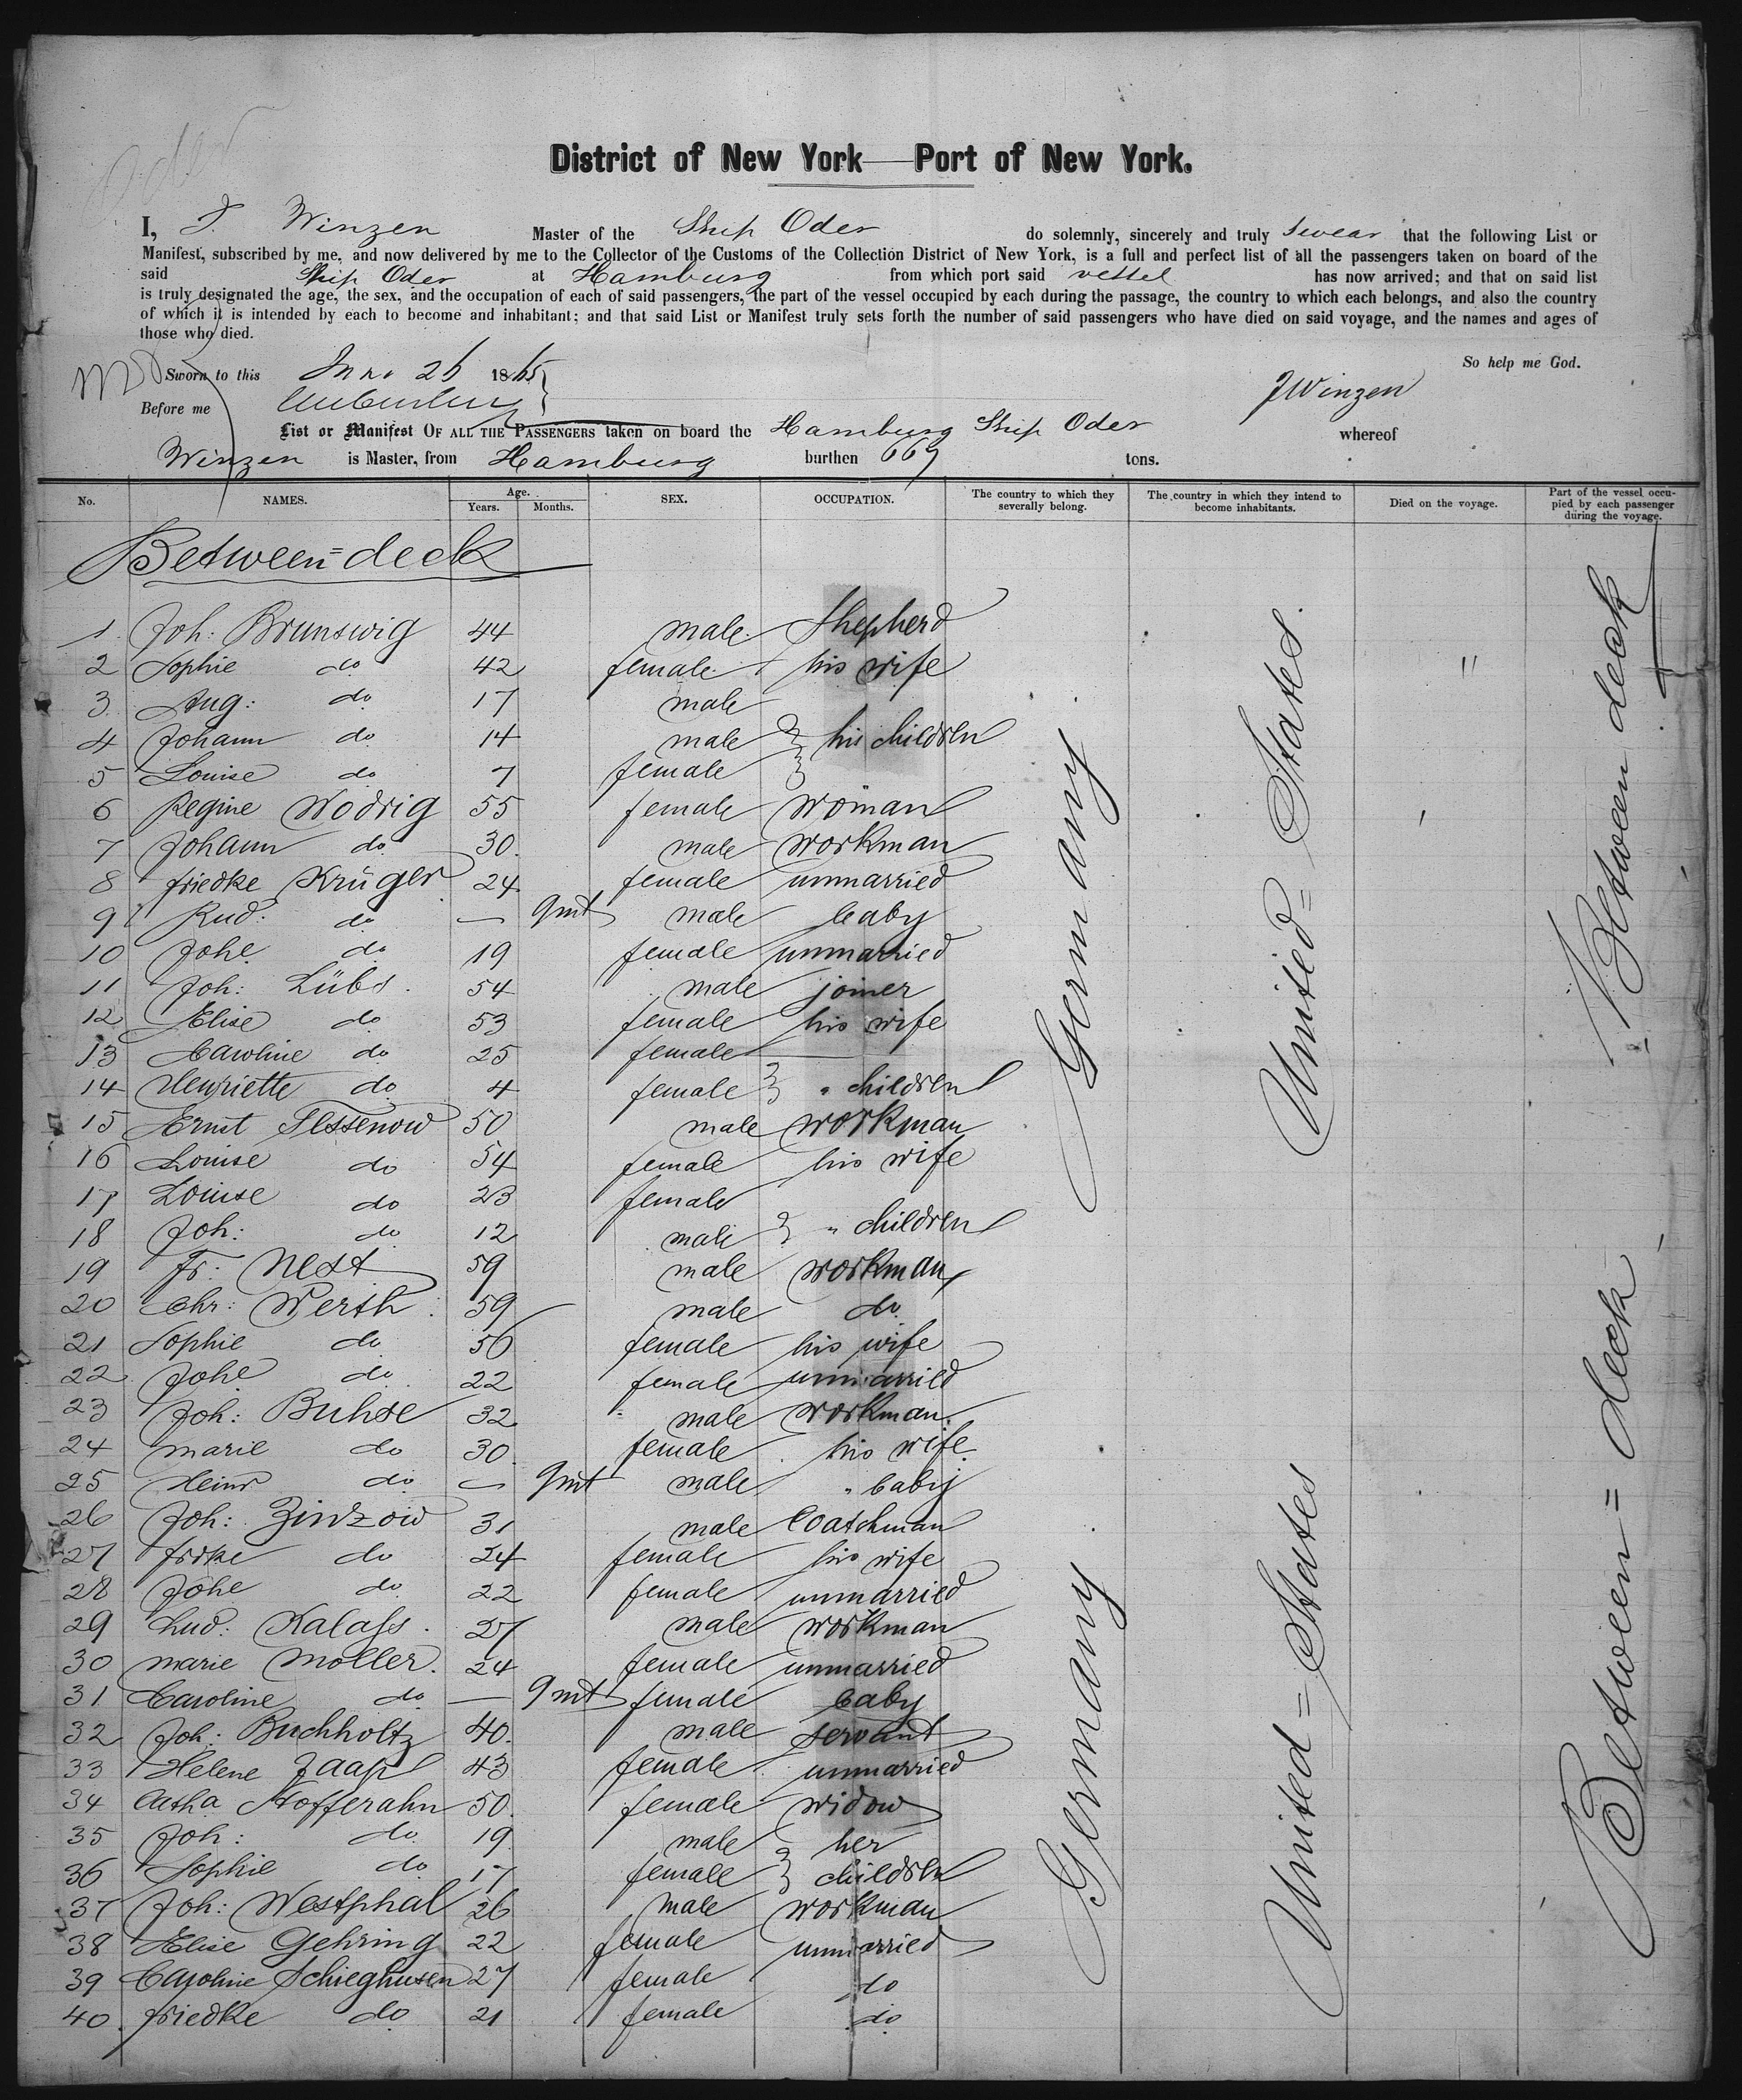 Oder
District of New York—Port of New York.
I, J. Winzen Master of the Ship Oder do solemnly, sincerely and truly swear that the following List or
Manifest, subscribed by me, and now delivered by me to the Collector of the Customs of the Collection District of New York, is a full and perfect list of all the passengers taken on board of the
said Ship Oder at Hamburg from which port said vessel has now arrived; and that on said list
is truly designated the age, the sex, and the occupation of each of said passengers, the part of the vessel occupied by each during the passage, the country to which each belongs, and also the country
of which it is intended by each to become and inhabitant; and that said List or Manifest truly sets forth the number of said passengers who have died on said voyage, and the names and ages of
those who died.
So help me God.
Sworn to this June 26 1865
JWinzen
Before me
List or Manifest OF ALL THE PASSENGERS taken on board the Hamburg Ship Oder whereof
Winzen is Master, from Hamburg burthen 669 tons.
No. NAMES. Age. Years. Months. SEX. OCCUPATION. The country to which they severally belong. The country in which they intend to become inhabitants. Died on the voyage. Part of the vessel occupied by each passenger during the voyage.
Between=deck
1 Joh: Brunswig 44 male Shepherd
2 Sophie do 42 female his wife "
3 Aug: do 17 male
4 Johann do 14 male his children
5 Louise do 7 female
6 Regine Wodrig 55 female woman
7 Johann do 30 male workman
8 friedke Krüger 24 female unmarried
9 Rud: do — 9mt male baby
10 Johe do 19 female unmarried
11 Joh: Lübs 54 male joiner
12 Elise do 53 female his wife
13 Caroline do 25 female
14 Henriette do 4 female " children
15 Ernst Tessenow 50 male workman
16 Louise do 54 female his wife
17 Louise do 23 female
18 Joh: do 12 male " children
19 Fr: Nest 59 male workman
20 Chr: Werth 59 male do
21 Sophie do 56 female his wife
22 Johe do 22 female unmarried
23 Joh: Buhse 32 male workman
24 marie do 30 female his wife
25 Heinr do — 9mt male " baby
26 Joh: Zinzow 31 male Coatchman
27 frdke do 24 female his wife
28 Johe do 22 female unmarried
29 Lud: Kalass 27 male workman
30 marie Moller 24 female unmarried
31 Caroline do — 9mt female baby
32 Joh: Buchholtz 40 male servant
33 Helene Jaap 43 female unmarried
34 Catha Stofferahn 50 female widow
35 Joh: do 19 male her
36 Sophie do 17 female children
37 Joh: Westphal 26 male workman
38 Elise Gehring 22 female unmarried
39 Caroline Schieghusen 27 female do
40 friedke do 21 female do
Germany
United=States
Between deck
Germany
United=States
Between=deck